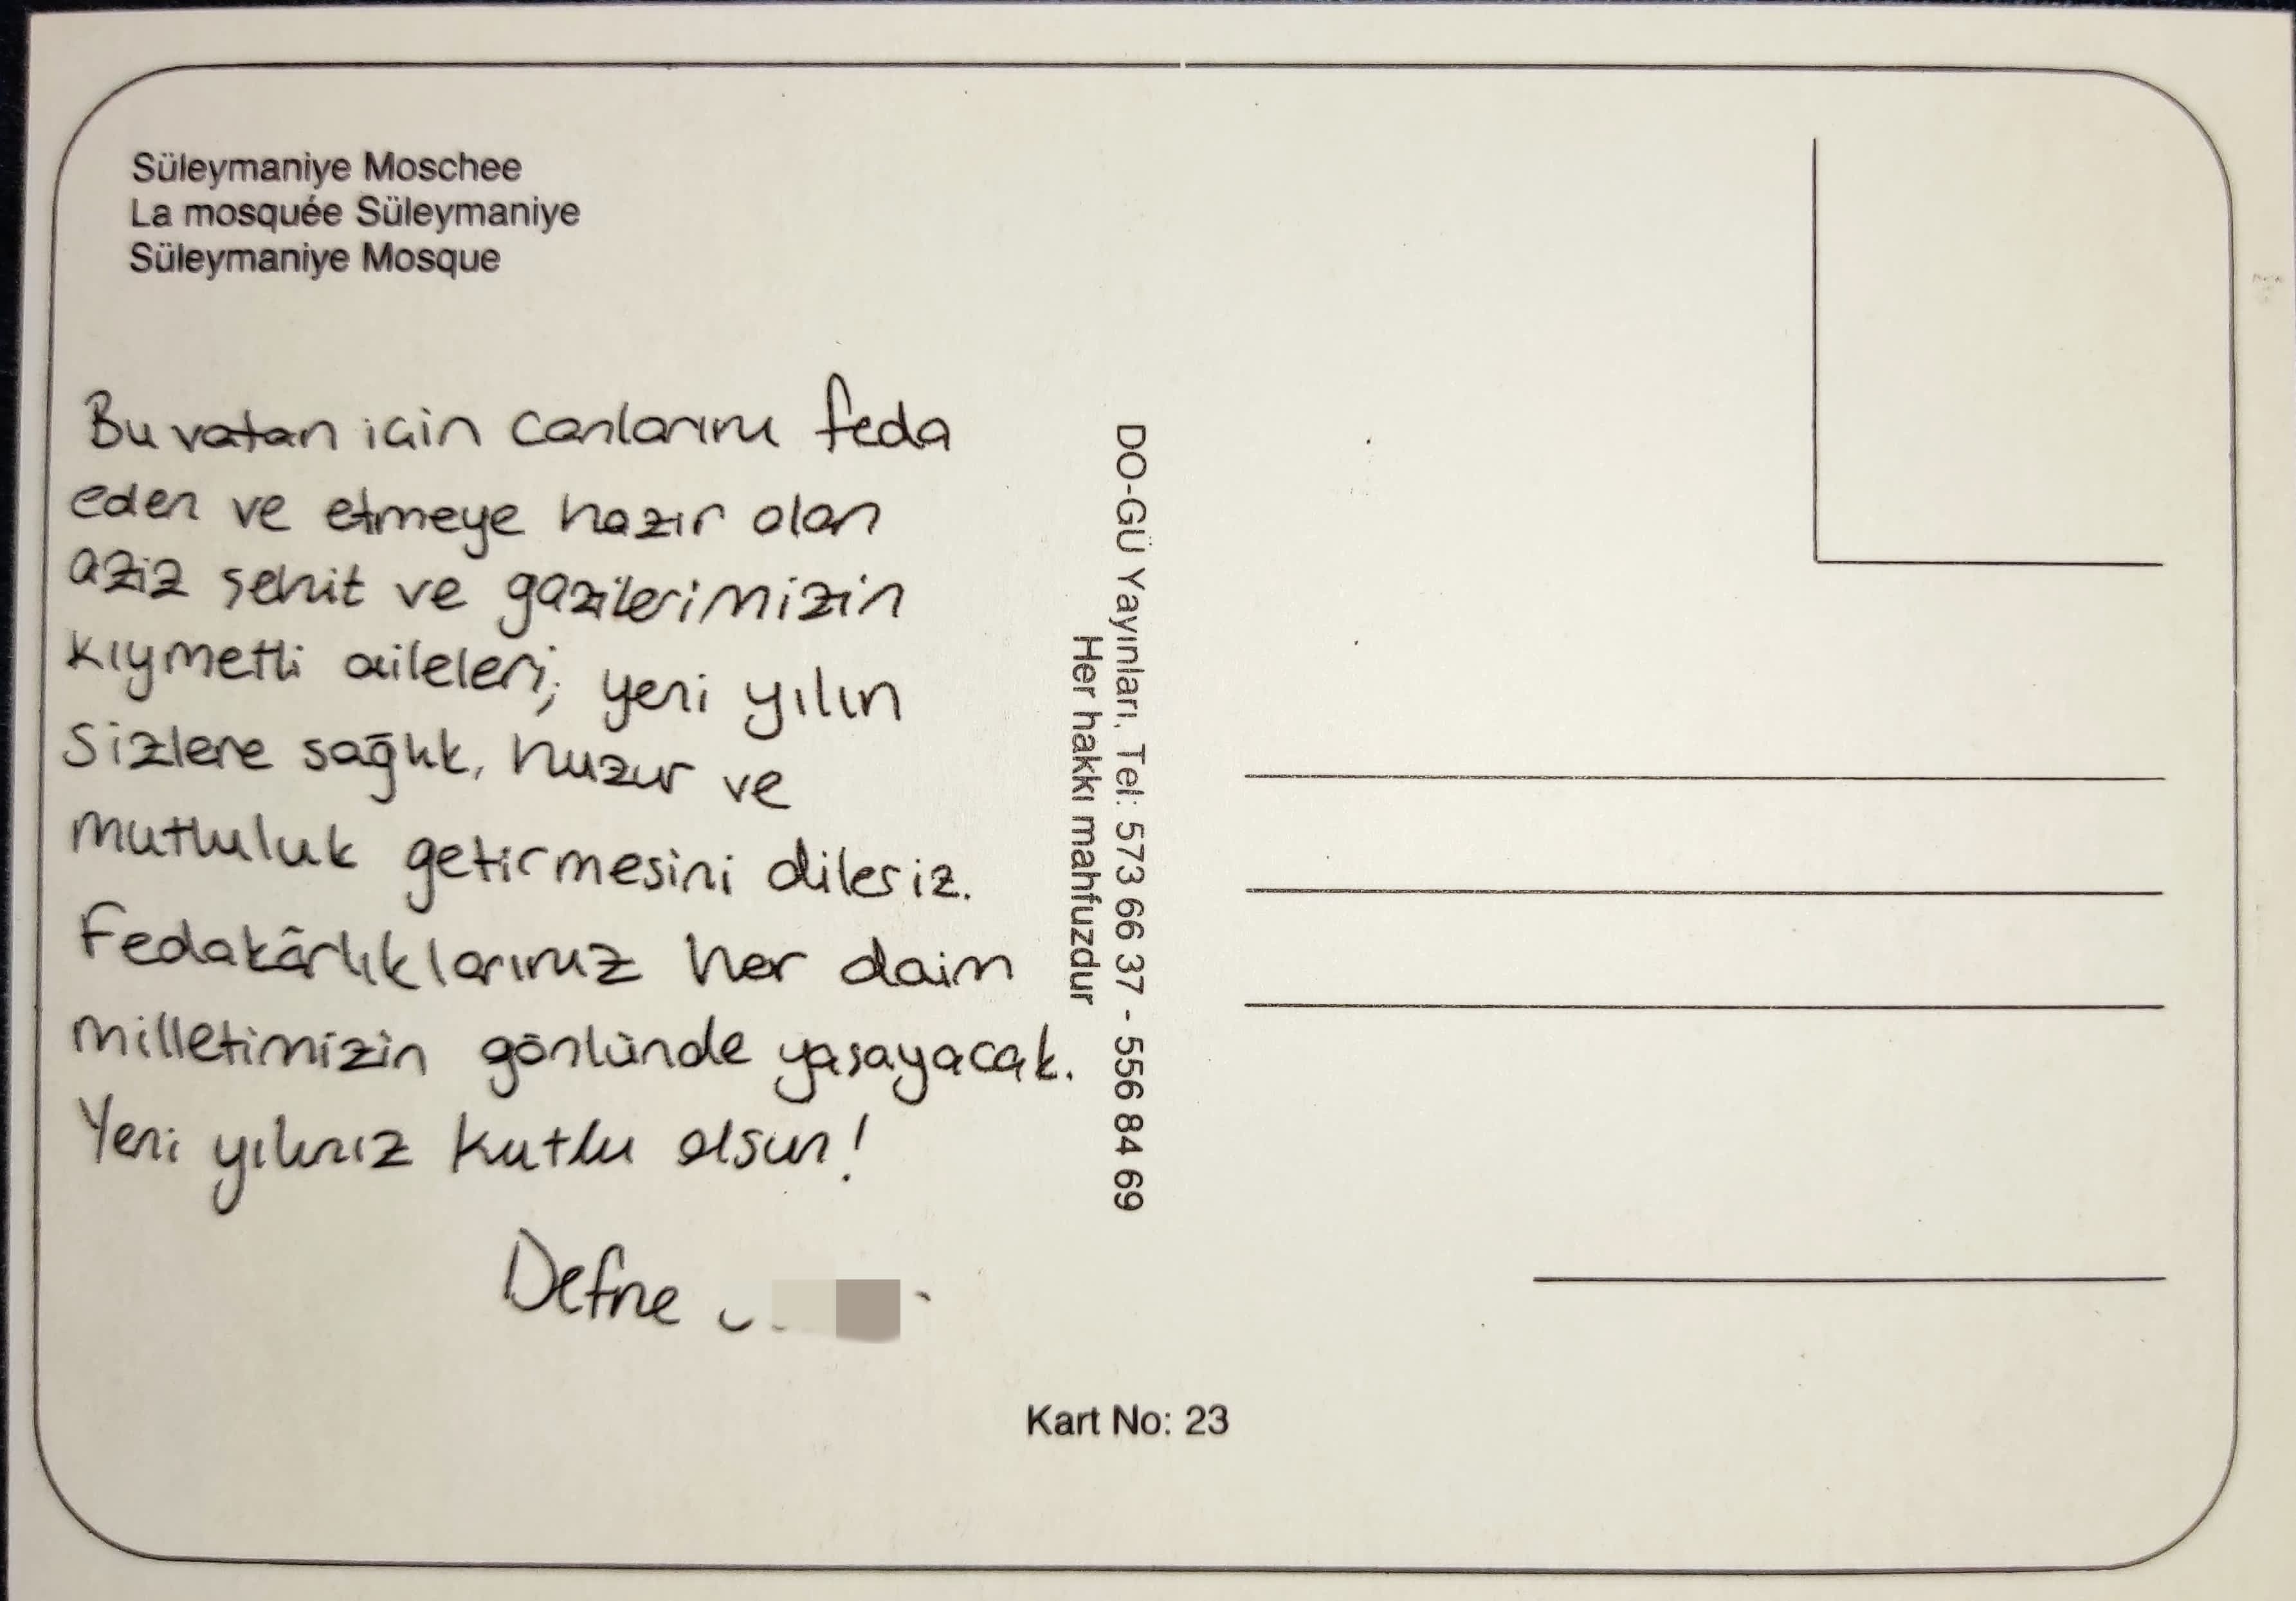 Süleymaniye Moschee
La mosquée Süleymaniye
Süleymaniye Mosque
Bu vatan için canlarını feda
eden ve etmeye hazır olan
aziz şehit ve gazilerimizin
kıymetli aileleri; yeni yılın
sizlere sağlık, huzur ve
mutluluk getirmesini dileriz.
Fedakârlıklarınız her daim
milletimizin gönlünde yaşayacak.
Yeni yılınız kutlu olsun!
Defne
DO-GÜ Yayınları, Tel: 573 66 37 - 556 84 69
Her hakkı mahfuzdur
Kart No: 23